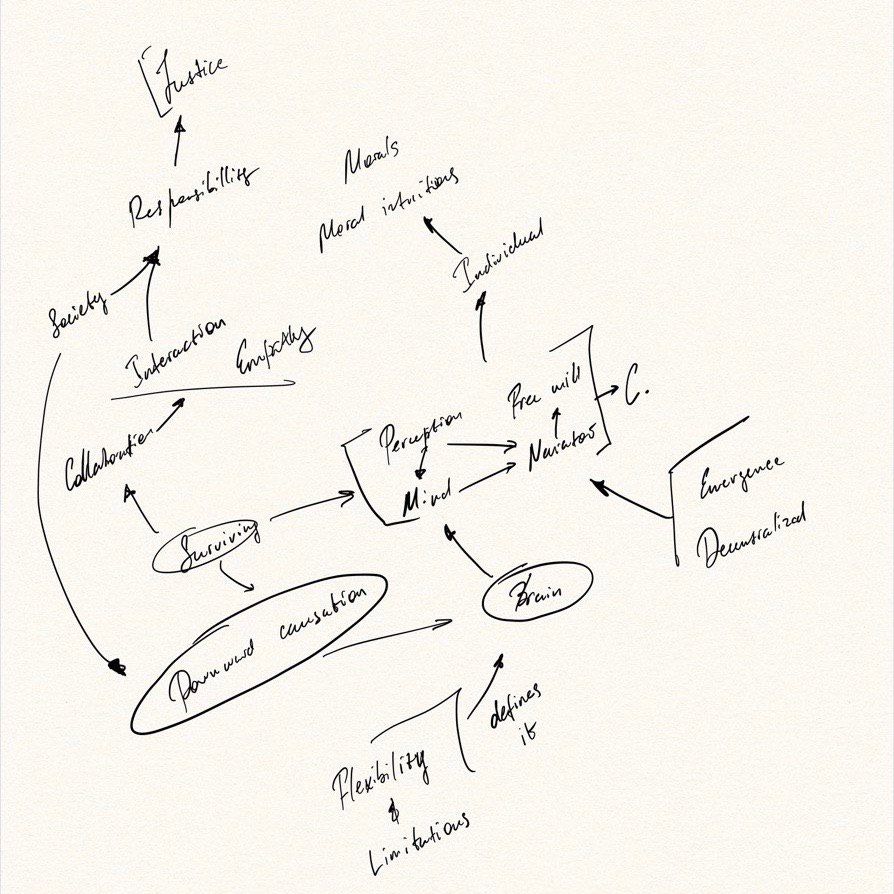 Justice
Responsibillity
Morals
Moral intuitions
Individual
Society
Interaction
Empathy
Free will
C.
Perception
Narrator
Collaboration
Mind
Emergence
Decentralized
Surviving
Brain
Downward causation
defines
it
Flexibility
&
Limitations